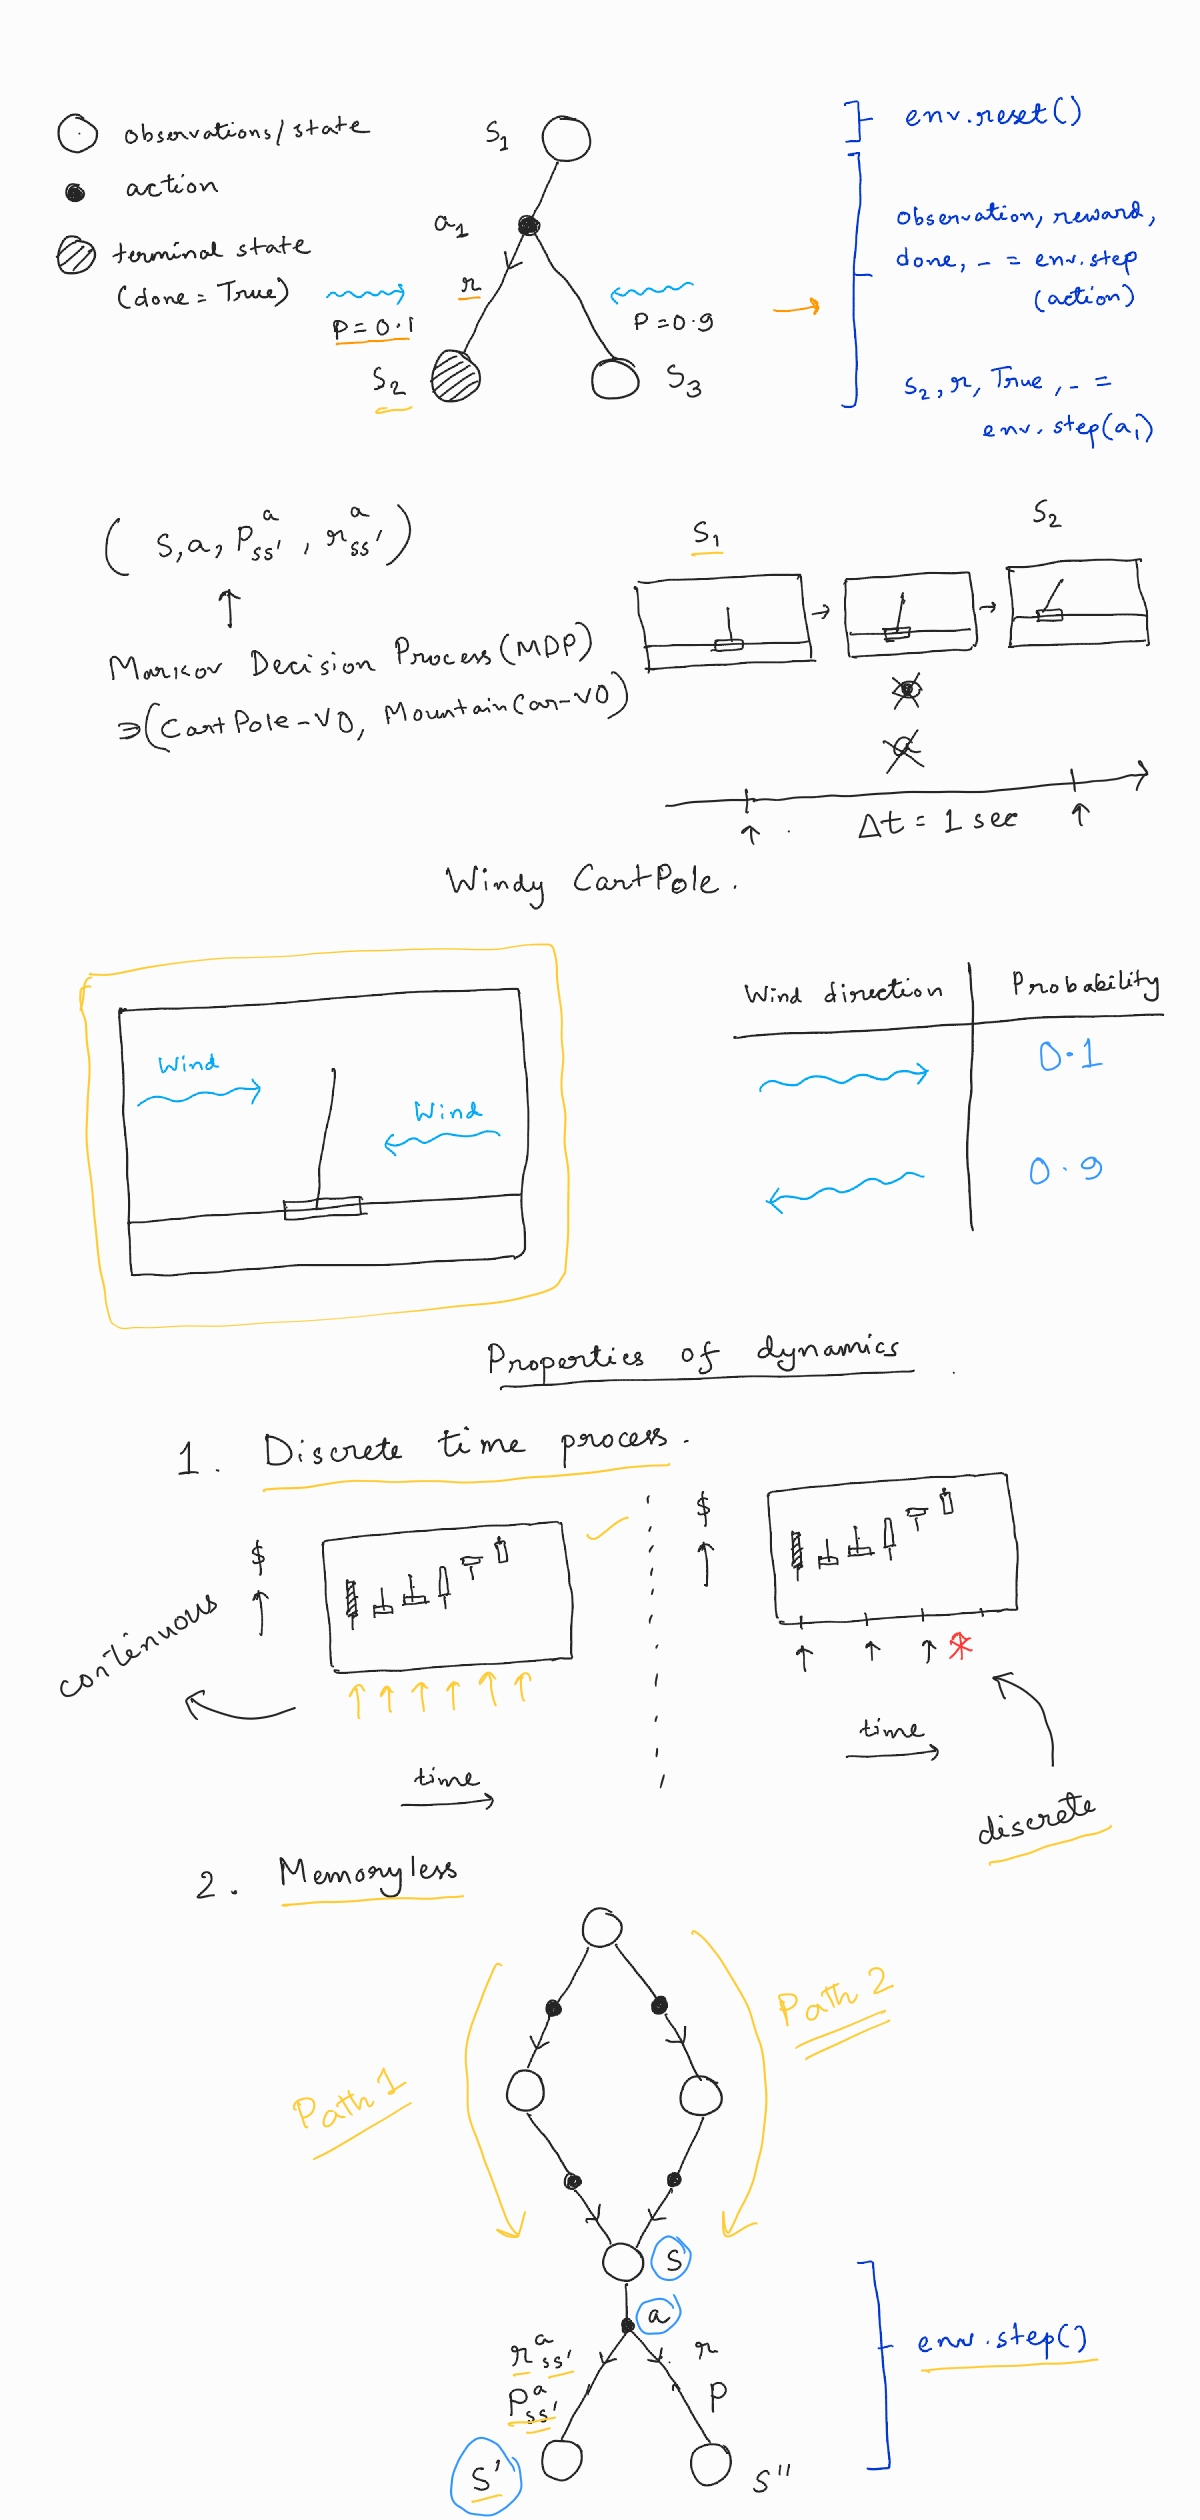 observations/state
action
terminal state
(done = True)
S1
a1
r
P = 0.1
P = 0.9
S2
S3
env.reset()
observation, reward,
done, _ = env.step
(action)
S2, r, True, _ =
env.step(a1)
(S, a, P^a_ss', r^a_ss')
Markov Decision Process (MDP)
∋ (CartPole-V0, MountainCar-V0)
S1
S2
a
Δt = 1 sec
Windy CartPole.
Wind
Wind
Wind direction
Probability
0.1
0.9
Properties of dynamics
1. Discrete time process.
$
continuous
time
$
time
discrete
2. Memoryless
Path 1
Path 2
S
a
r^a_ss'
P^a_ss'
r
P
S'
S''
env.step()